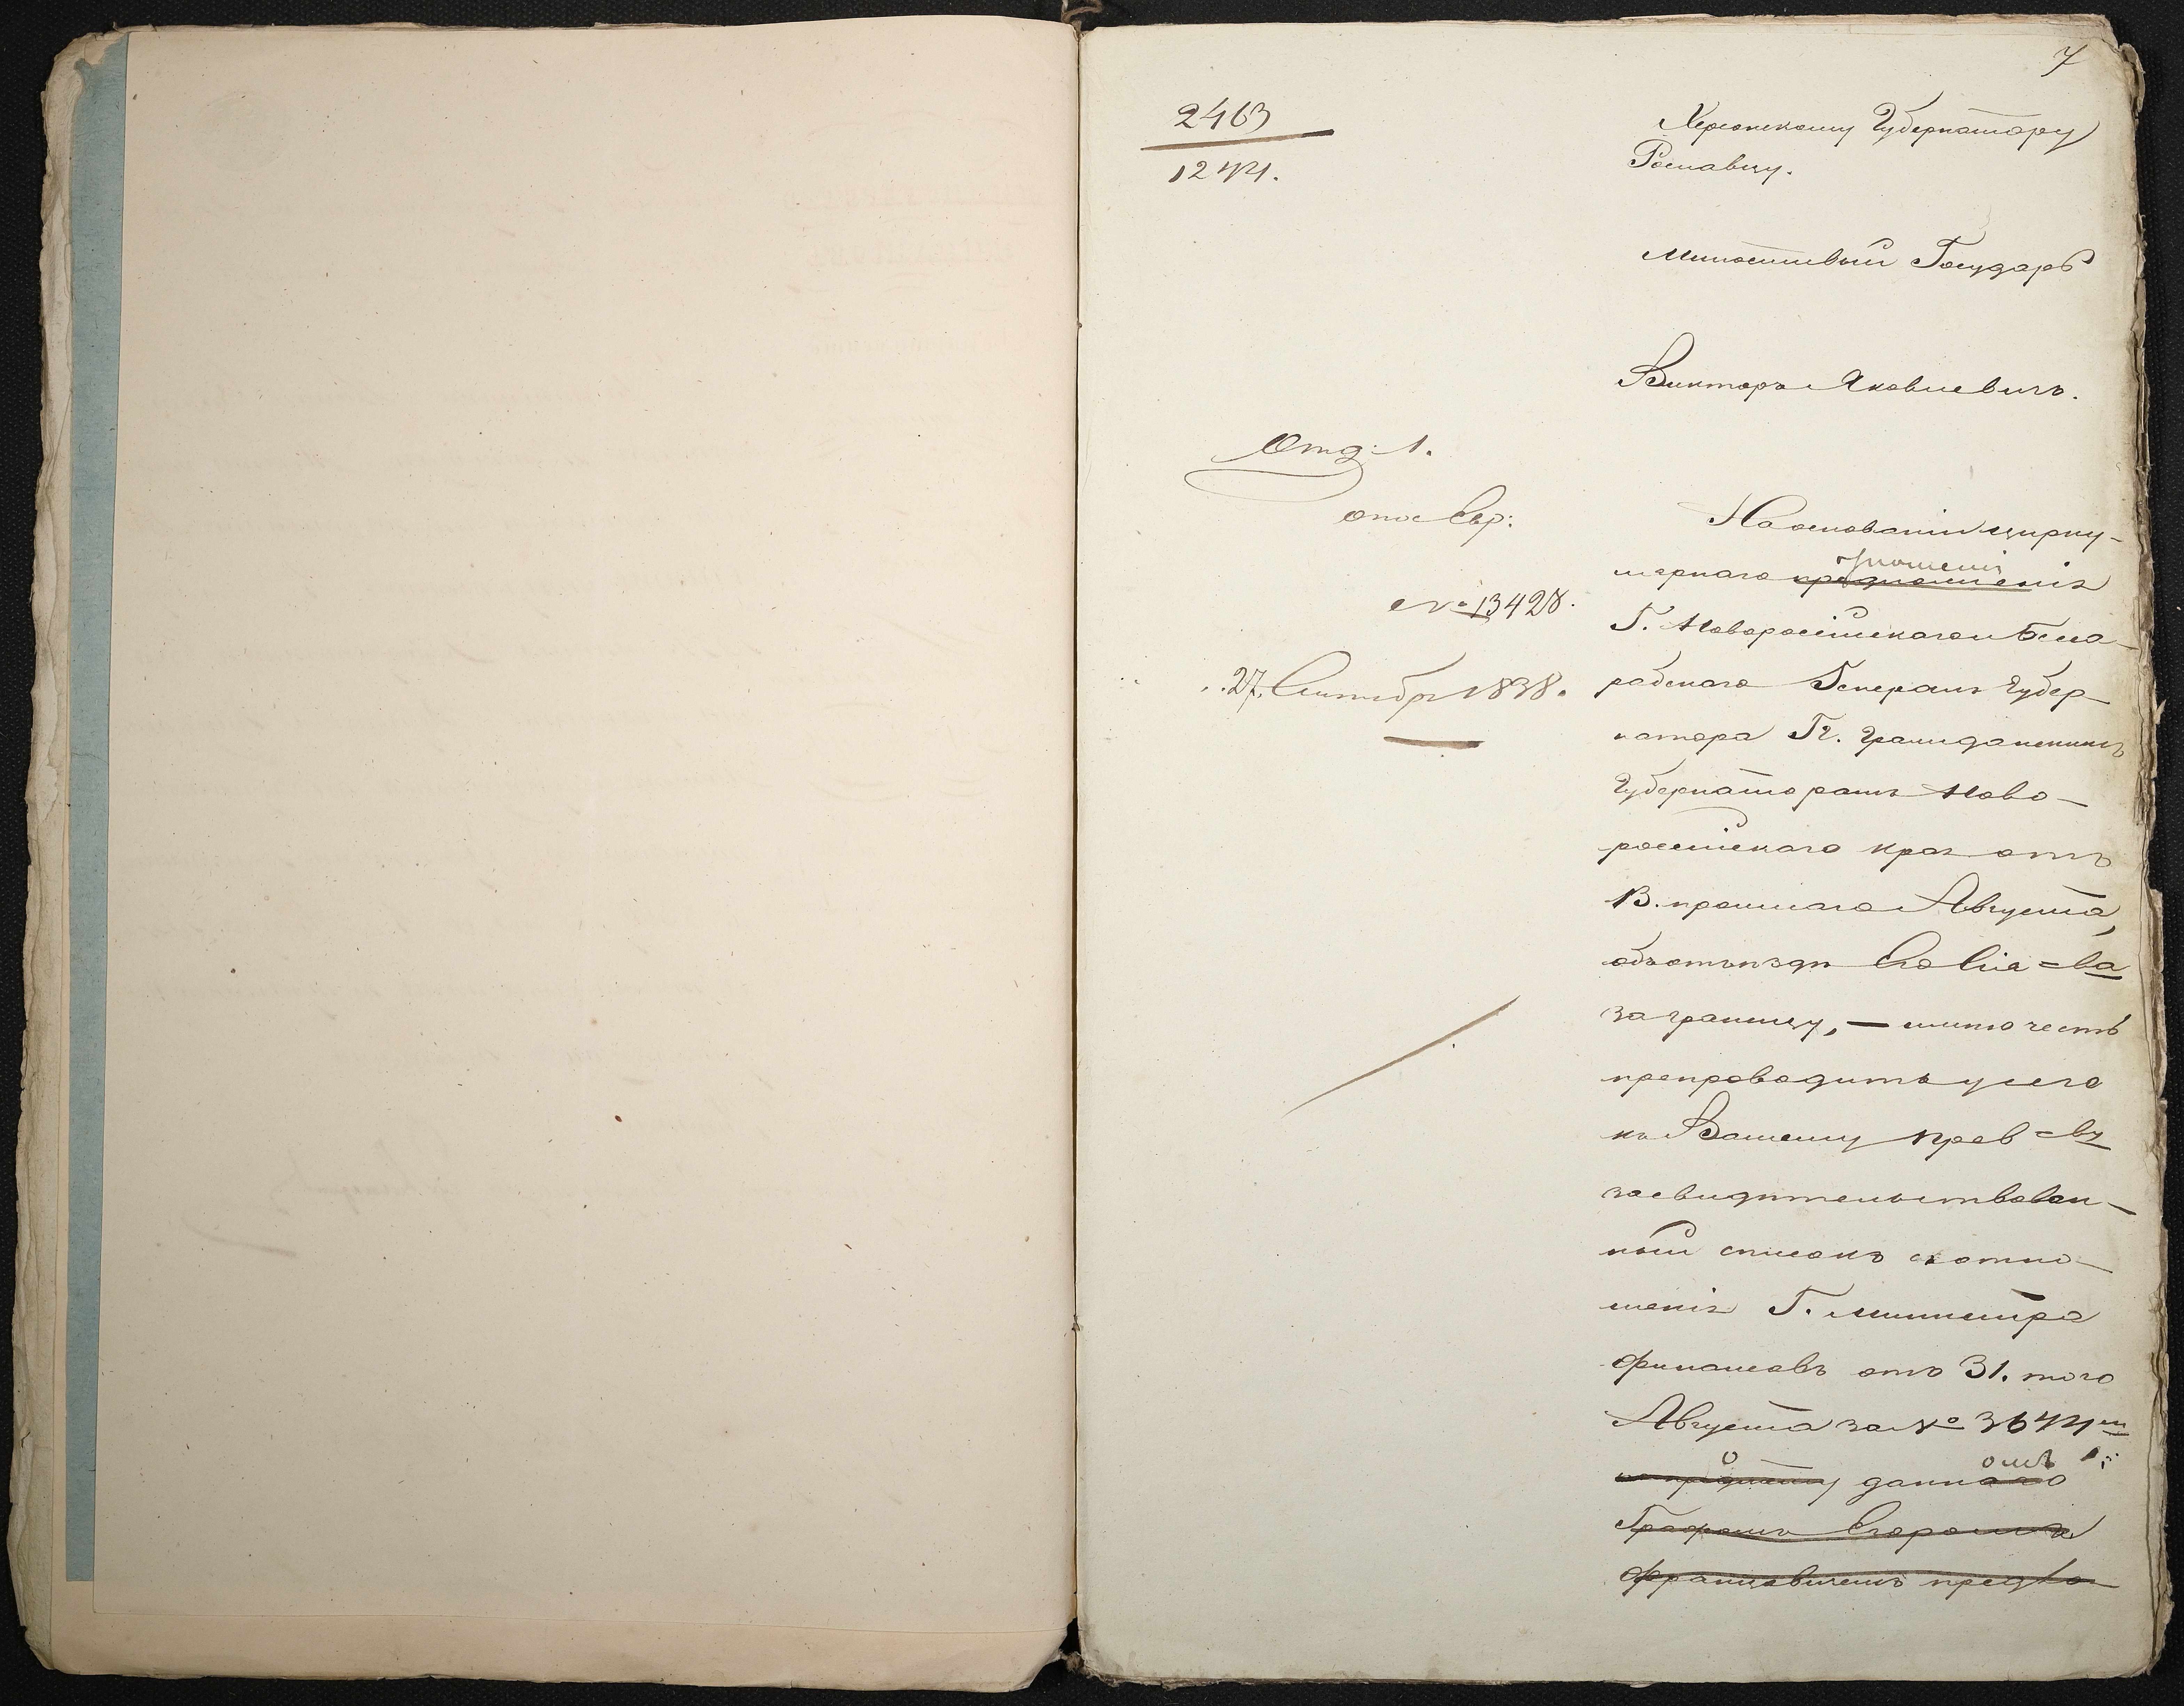 7
2463
1244.
Херсонскому Губернатору
Рославцу.
Милостивый Государь
Викторъ Яковлевичъ.
Отд: 1.
отъ Евр:
№ 13428.
27. Сентября 1838.
На основаніи цирку-
отношенія
лярнаго предложенія
Г. Новороссійскаго и Бесса-
рабскаго Генералъ Губер-
натора Гг. Гражданскимъ
Губернаторамъ Ново-
россійскаго края отъ
13. прошлаго Августа,
объ отъѣздѣ Его Сія=ва
за границу, — имѣю честь
препроводить у сего
къ Вашему Прев=ву
засвидѣтельствован-
ный списокъ съ отно-
шенія Г. Министра
Финансовъ отъ 31. того
Августа за № 3644
о данномъ
Графомъ Егоромъ
Францовичемъ